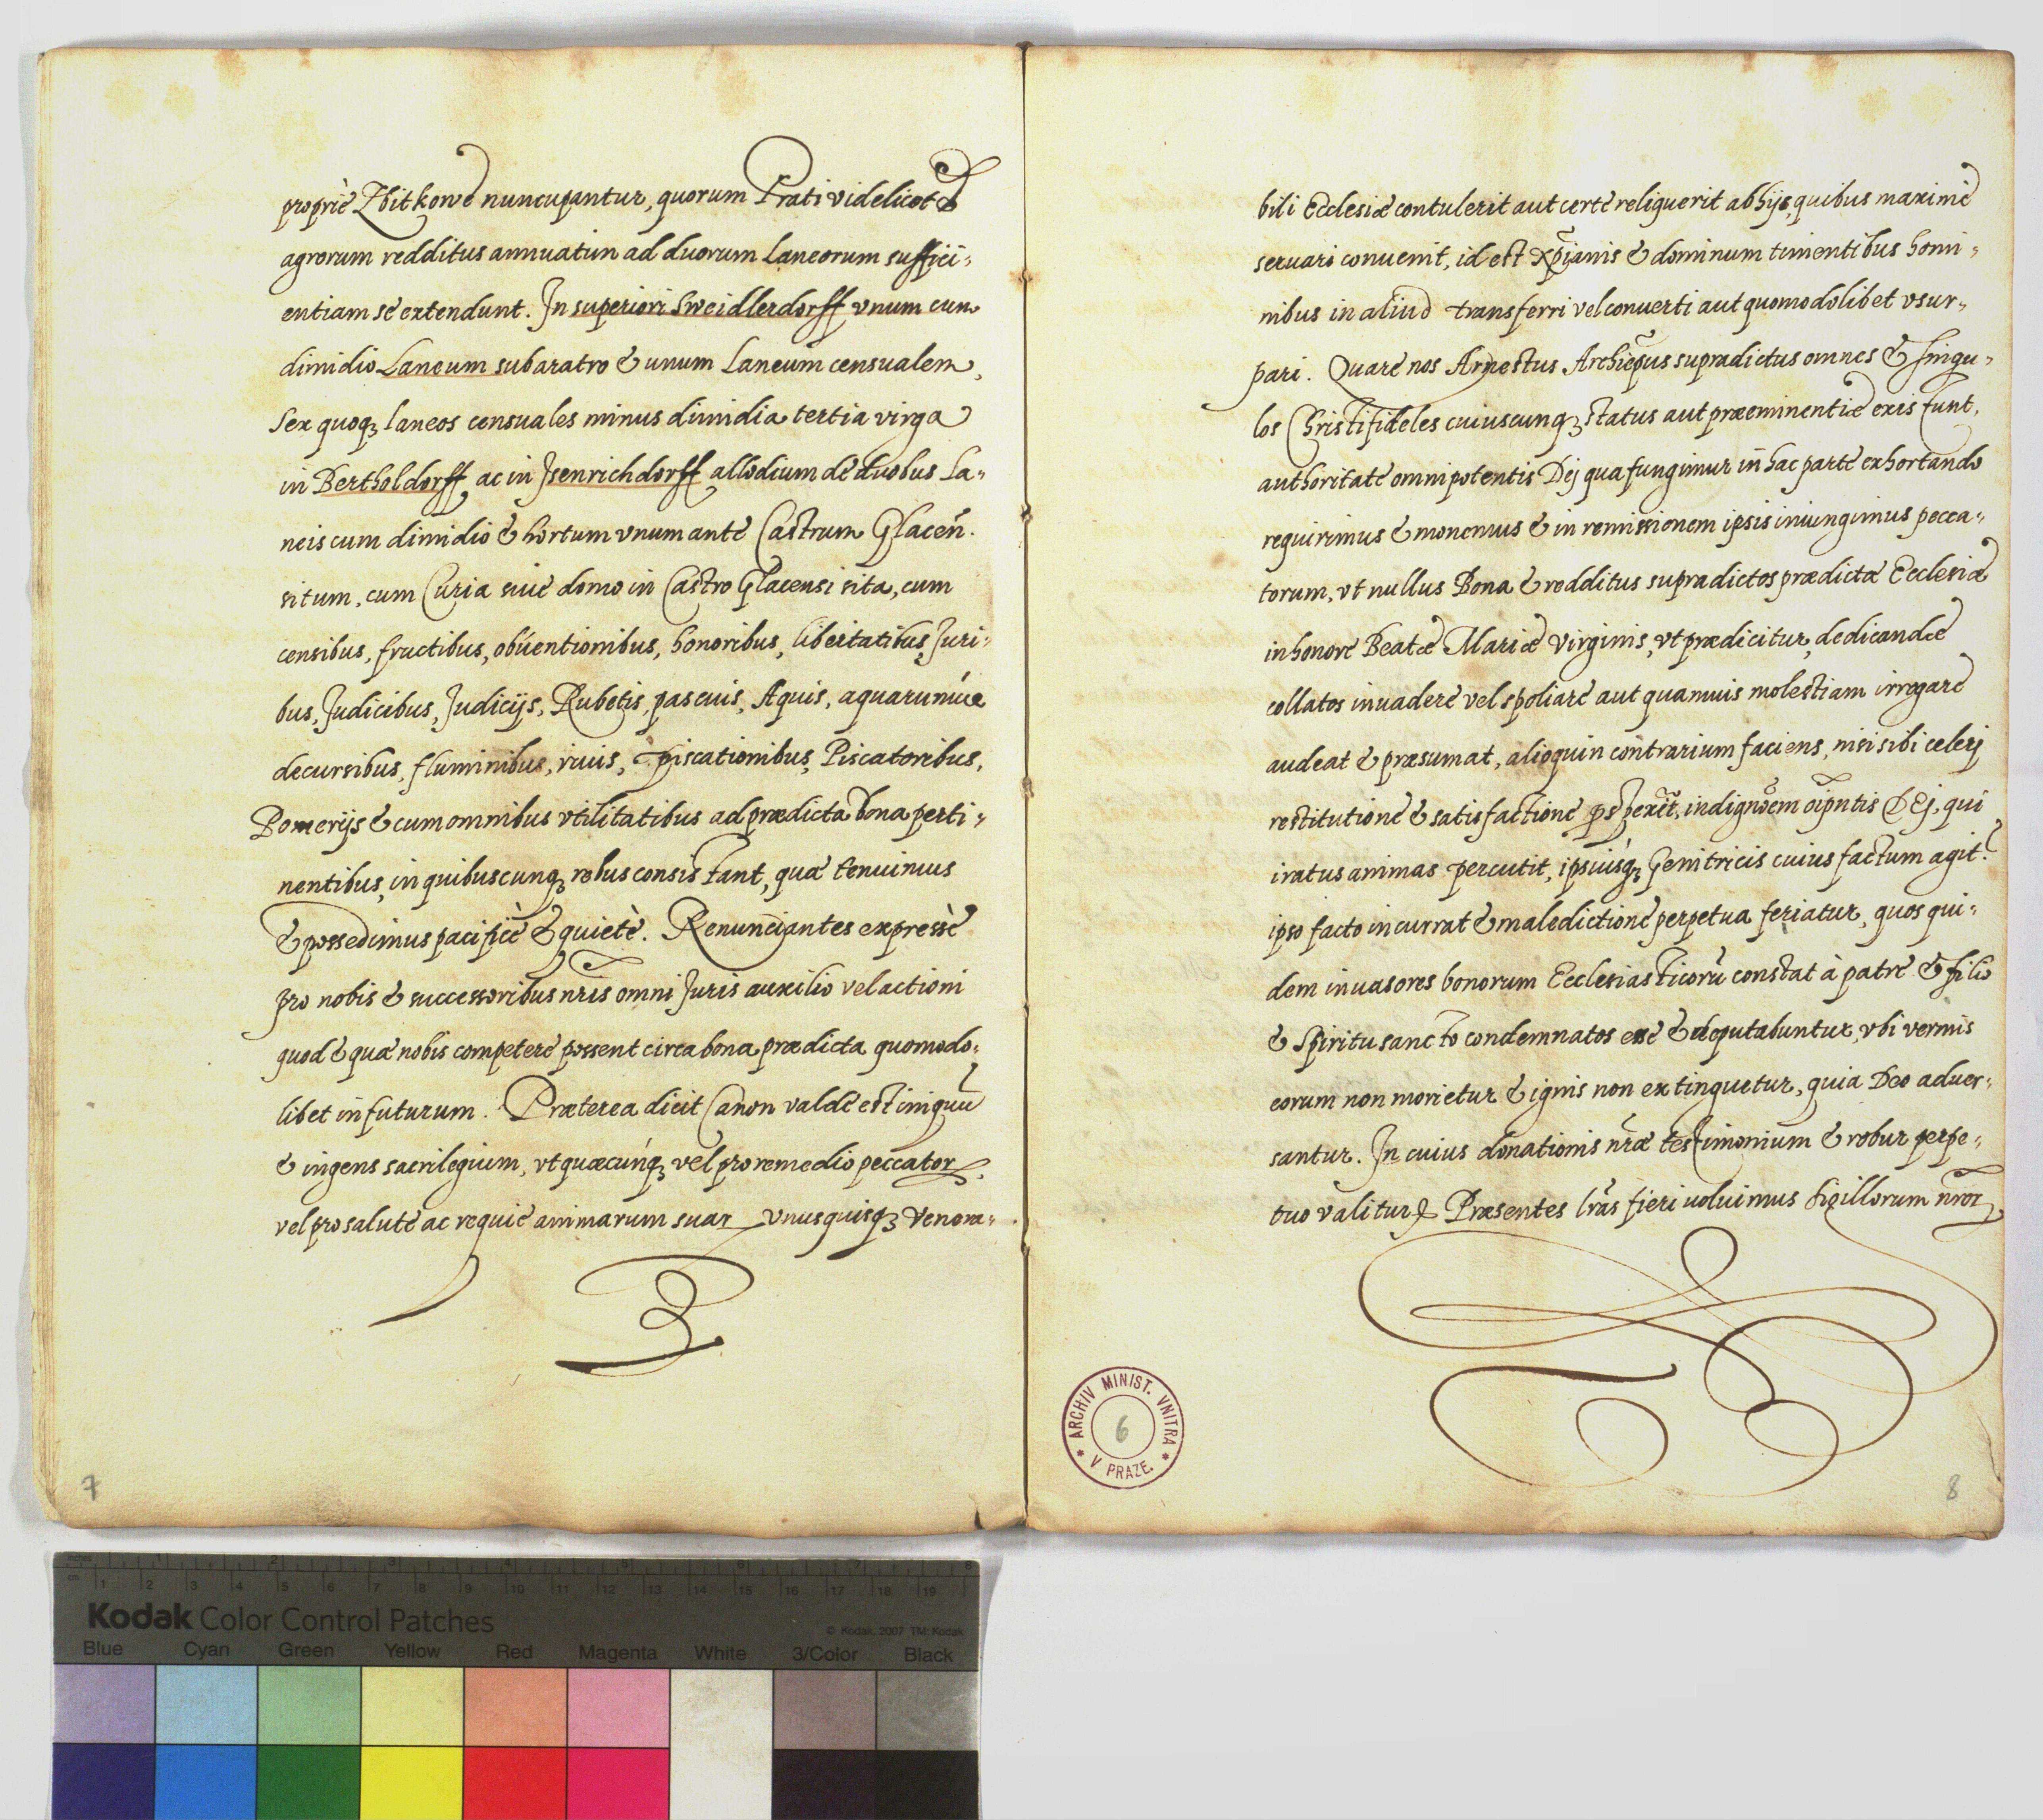 propriè Zbitkowe nuncupantur, quorum Prati videlicet &
agrorum redditus annuatim ad duorum Laneorum suffici-
entiam se extendunt. In superiori Sweidlerdorff vnum cum
dimidio Laneum sub aratro & unum Laneum censualem,
Sex quoqꝫ laneos censuales minus dimidia tertia virga
in Bertholdorff, ac in Isenrichdorff allodium de duobus La-
neis cum dimidio & hortum vnum ante Castrum Glaceñ.
situm, cum Curia siue domo in Castro Glacensi sita, cum
censibus, fructibus, obuentionibus, honoribus, libertatibus, Juri-
bus, Judicibus, Judicijs, Rubetis, pascuis, Aquis, aquarumúe
decursibus, fluminibus, riuis, piscationibus, Piscatoribus,
Pomerijs & cum omnibus vtilitatibus ad prædicta bona perti-
nentibus, in quibuscunqꝫ rebus consistant, quæ tenuimus
& possedimus pacificè & quietè. Renunciantes expressè
pro nobis & successoribus nr̃is omni Juris auxilio vel actioni
quod & quæ nobis competere possent circa bona prædicta quomodo-
libet in futurum. Præterea dicit Canon valde est iniquũ
& ingens sacrilegium, vt quæcúnqꝫ vel pro remedio peccatorꝝ,
vel pro salute ac requie animarum suarꝝ vnusquisqꝫ Venera-
bili Ecclesiæ contulerit aut certe reliquerit ab hijs, quibus maxime
seruari conuenit, id est Xp̃ianis & dominum timentibus homi-
nibus in aliud transferri vel conuerti aut quomodolibet vsur-
pari. Quare nos Arnestus Archiep̃us supradictus omnes & singu-
los Christifideles cuiuscunqꝫ status aut præeminentiæ existunt,
authoritate omnipotentis Dej qua fungimur in hac parte exhortando
requirimus & monemus & in remissionem ipsis iniungimus pecca-
torum, vt nullus Bona & redditus supradictos prædictæ Ecclesiæ
in honore Beatæ Mariæ Virginis, vt prædicitur, dedicandæ
collatos inuadere vel spoliare aut quamuis molestiam irrogare
audeat & præsumat, alioquin contrarium faciens, nisi sibi celerj
restitutione & satisfactione indignõem oĩpntis DEj, qui
iratus animas percutit, ipsiusqꝫ Genitricis cuius factum agit.
ipso facto incurrat & maledictione perpetua feriatur, quos qui-
dem inuasores bonorum Ecclesiasticorũ constat à patre & filio
& Spiritu sancto condemnatos esse & deputabuntur, vbi vermis
eorum non morietur & ignis non extinquetur, quia Deo aduer-
santur. In cuius donationis nr̃æ testimonium & robur perpe-
tuo valiturꝝ Præsentes lr̃as fieri uoluimus Sigillorum nr̃orꝝ
ARCHIV MINIST. VNITRA V PRAZE.
6
7
8
Kodak Color Control Patches
© Kodak, 2007 TM: Kodak
Inches 1 2 3 4 5 6 7 8
cm 1 2 3 4 5 6 7 8 9 10 11 12 13 14 15 16 17 18 19
Blue Cyan Green Yellow Red Magenta White 3/Color Black